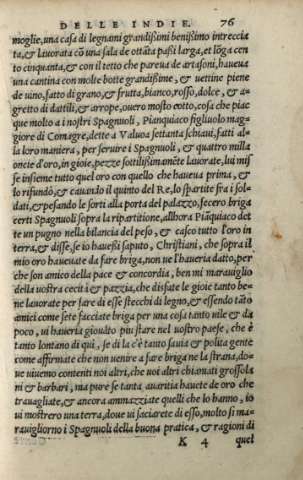 DELLE INDIE. 76
moglie, una casa di legnami grandißimi benißimo intreccia
ta, & lauorata cō una sala de ottāta paßi larga, et lōga cen
to cinquanta, & con il tetto che pareua de artesoni, haueua
una cantina con molte botte grandißime, & uettine piene
de uino, fatto di grano, & frutta, bianco, rosso, dolce, & a-
gretto di dattili, & arrope, ouero mosto cotto, cosa che piac
que molto a i nostri Spagnuoli, Pianquiaco figliuolo mag-
giore di Comagre, dette a Valuoa settanta schiaui, fatti al-
la loro maniera, per seruire i Spagnuoli, & quattro milla
oncie d'oro, in gioie, pezze sottilißimamēte lauorate, lui mis
se insieme tutto quel oro con quello che haueua prima, &
lo rifundò, & cauando il quinto del Re, lo spartite fra i sol-
dati, & pesando le sorti alla porta del palazzo, fecero briga
certi Spagnuoli sopra la ripartitione, allhora Piāquiaco det
te un pugno nella bilancia del peso, & casco tutto l'oro in
terra, & disse, se io haueßi saputo, Christiani, che sopra il
mio oro haueuate da fare briga, non ue l'haueria datto, per
che son amico della pace & concordia, ben mi marauiglio
della uostra cecità & pazzia, che disfate le gioie tanto be-
ne lauorate per fare di esse stecchi di legno, & essendo tāto
amici come sete facciate briga per una cosa tanto uile & da
poco, ui haueria giouato piu stare nel uostro paese, che è
tanto lontano di qui, se di la c'è tanto sauia & polita gente
come affirmate che non uenire a fare briga ne la strana, do-
ue uiuemo contenti noi altri, che uoi altri chiamati grossola
ni & barbari, ma pure se tanta auaritia hauete de oro che
trauagliate, & ancora ammazziate quelli che lo hanno, io
ui mostrero una terra, doue ui saciarete di esso, molto si ma-
rauigliorno i Spagnuoli della buona pratica, & ragioni di
K 4 quel